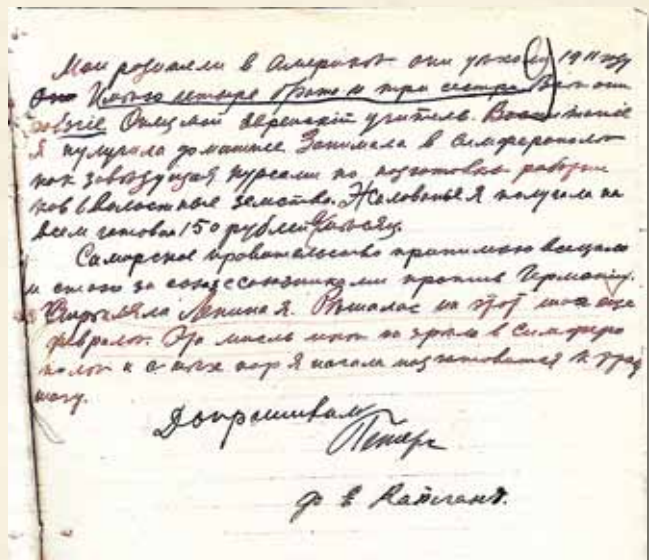 Мои родители в Америке они уехали 1911 году
Имею четыре брата и три сестры. Все они
рабочие Отец мой еврейский учитель. Воспитание
Я получила домашнее. Занимала в Симферополе
как заведущая курсами по подготовке работни
ков в Волостные земства. Жалованье я получала на
всем готовом 150 рублей в месяц.
Самарское правительство принимаю всецело
и стою за союз с союзниками против Германии.
Стреляла в Ленина я. Решалась на этот шаг еще
феврале. Эта мысль мне назрела в Симферо
поле и с тех пор я начала подготовляться к этому
шагу.
Допрашивал
Петерс